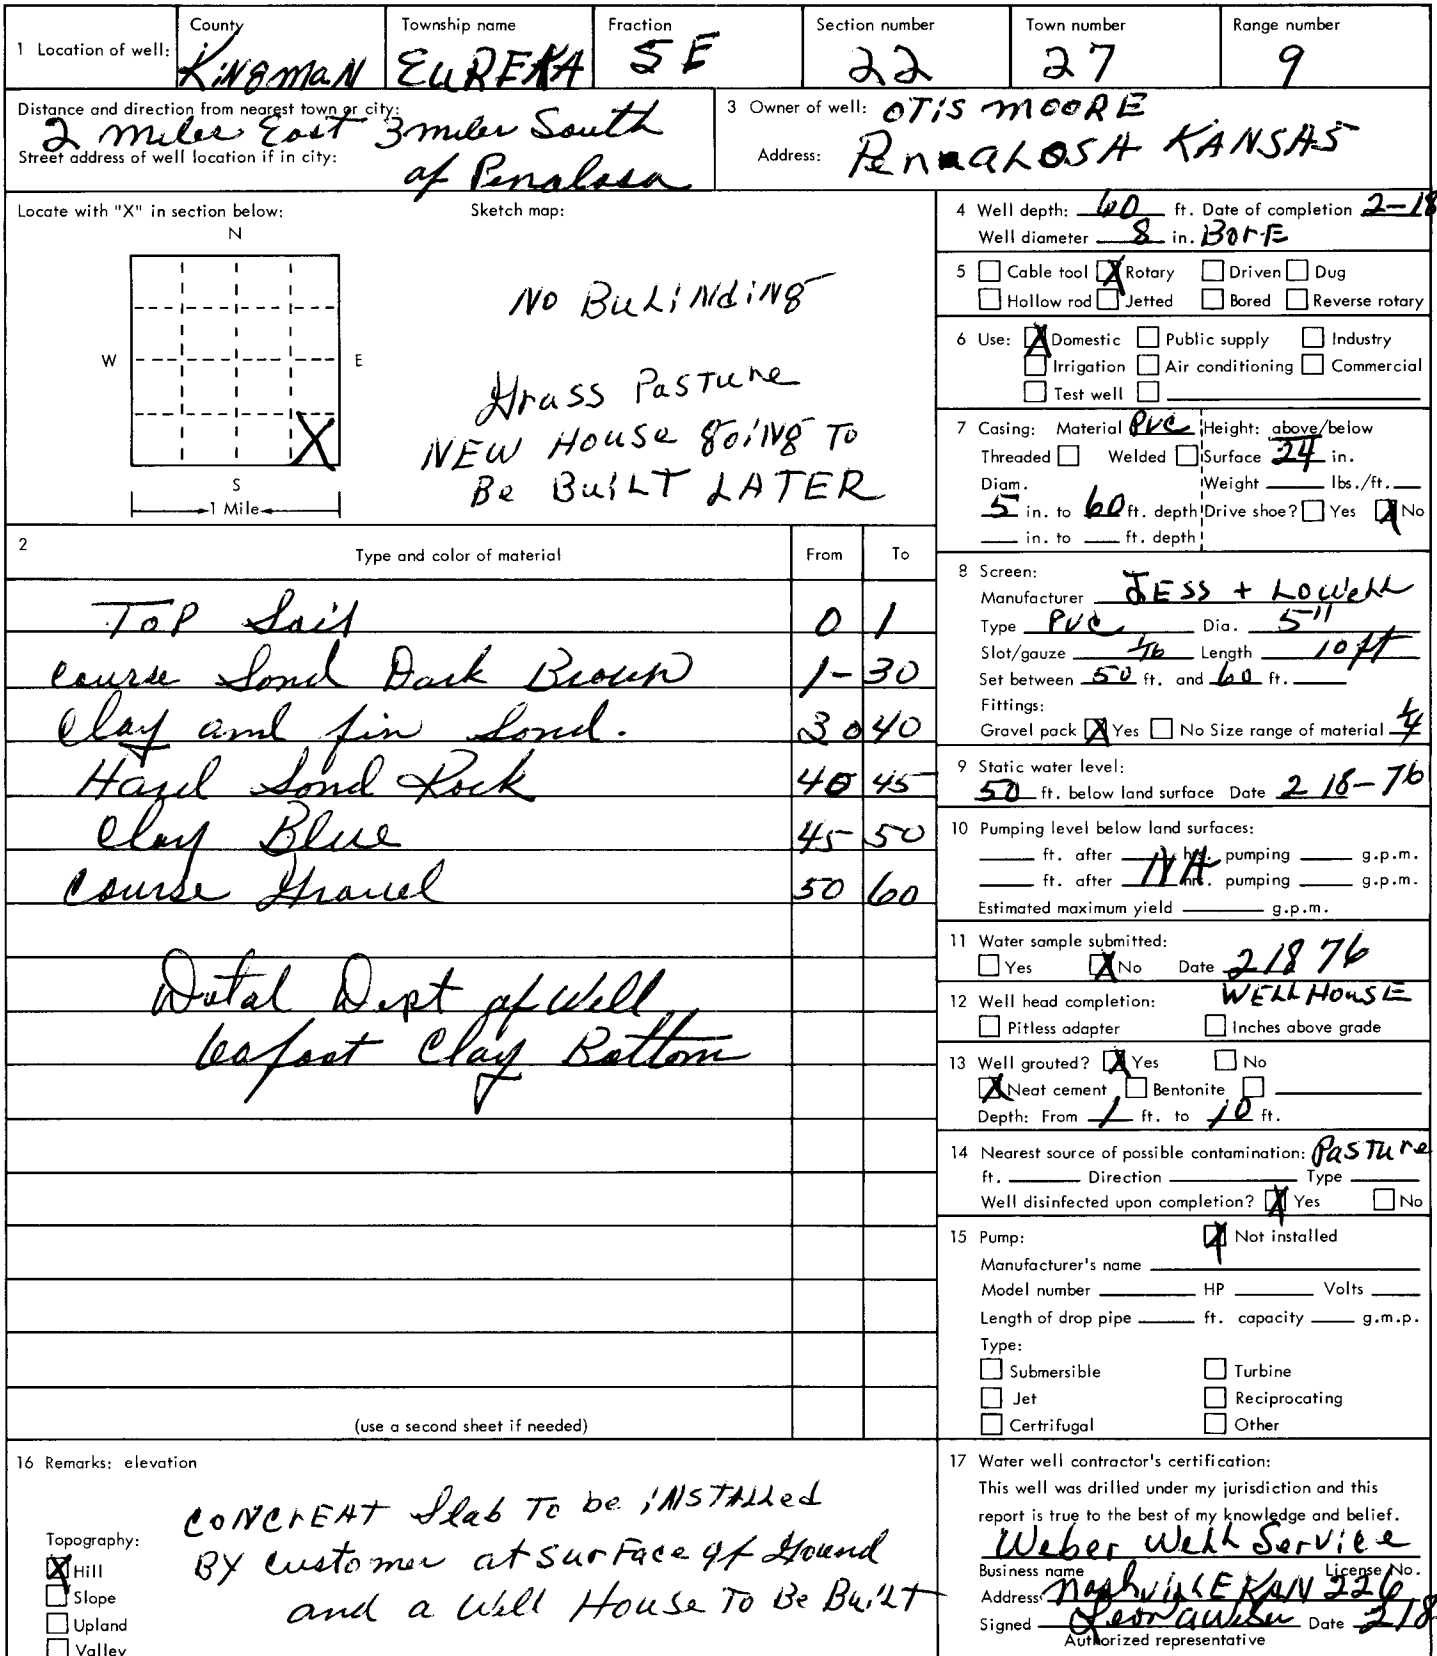 County Township name Fraction Section number Town number Range number
1 Location of well: KiNgmaN EUREKA SE 22 27 9
Distance and direction from nearest town or city:
2 miles East 3 miles South
Street address of well location if in city:
of Penalosa
3 Owner of well: OTiS mOORE
Address: PenaLOSA KANSAS
Locate with "X" in section below: Sketch map:
N
W E
S
1 Mile
X
NO BuLiNdiNg
Grass PasTure
NEW House goiNg To
Be BuiLT LATER
2 Type and color of material From To
ToP Soil 0 1
course Sond Dark Brown 1-30
Clay and fin Sond. 30 40
Hard Sond Rock 40 45
Clay Blue 45 50
Course Gravel 50 60
Dotal Dept of Well
60 foot Clay Bottom
(use a second sheet if needed)
4 Well depth: 60 ft. Date of completion 2-18
Well diameter 8 in. BorE
5 Cable tool X Rotary Driven Dug
Hollow rod Jetted Bored Reverse rotary
6 Use: X Domestic Public supply Industry
Irrigation Air conditioning Commercial
Test well
7 Casing: Material PVC Height: above/below
Threaded Welded Surface 24 in.
Diam. Weight lbs./ft.
5 in. to 60 ft. depth Drive shoe? Yes X No
in. to ft. depth
8 Screen:
Manufacturer JESS + LOWeLL
Type PVC Dia. 5"
Slot/gauze 1/16 Length 10 ft
Set between 50 ft. and 60 ft.
Fittings:
Gravel pack X Yes No Size range of material 1/4
9 Static water level:
50 ft. below land surface Date 2 18-76
10 Pumping level below land surfaces:
ft. after hrs. pumping g.p.m.
NA
ft. after hrs. pumping g.p.m.
Estimated maximum yield g.p.m.
11 Water sample submitted:
Yes X No Date 2 18 76
12 Well head completion: WELL HousE
Pitless adapter Inches above grade
13 Well grouted? X Yes No
X Neat cement Bentonite
Depth: From 1 ft. to 10 ft.
14 Nearest source of possible contamination: PasTure
ft. Direction Type
Well disinfected upon completion? X Yes No
15 Pump: X Not installed
Manufacturer's name
Model number HP Volts
Length of drop pipe ft. capacity g.m.p.
Type:
Submersible Turbine
Jet Reciprocating
Certrifugal Other
16 Remarks: elevation
CONCrEAT Slab To be iNSTALLed
BY customer at surFace of Gound
and a Well House To Be BuiLT
Topography:
X Hill
Slope
Upland
Valley
17 Water well contractor's certification:
This well was drilled under my jurisdiction and this
report is true to the best of my knowledge and belief.
Weber WeLL Service
Business name License No.
Address NashviLLE KAN 226
Signed Date 218
Authorized representative